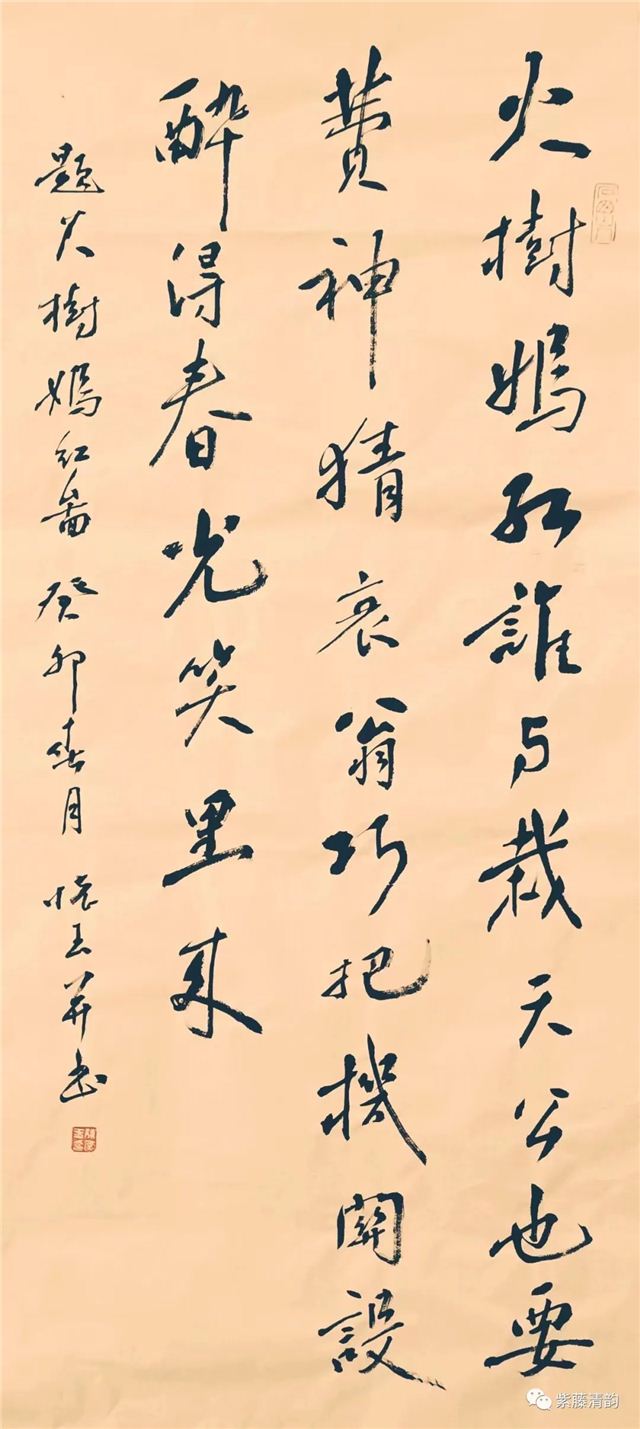 火樹嫣紅誰与栽天公也要
費神猜衰翁巧把機關設
醉得春光笑里来
題火樹嫣紅圖 癸卯春月 懷玉并書
紫藤清韵